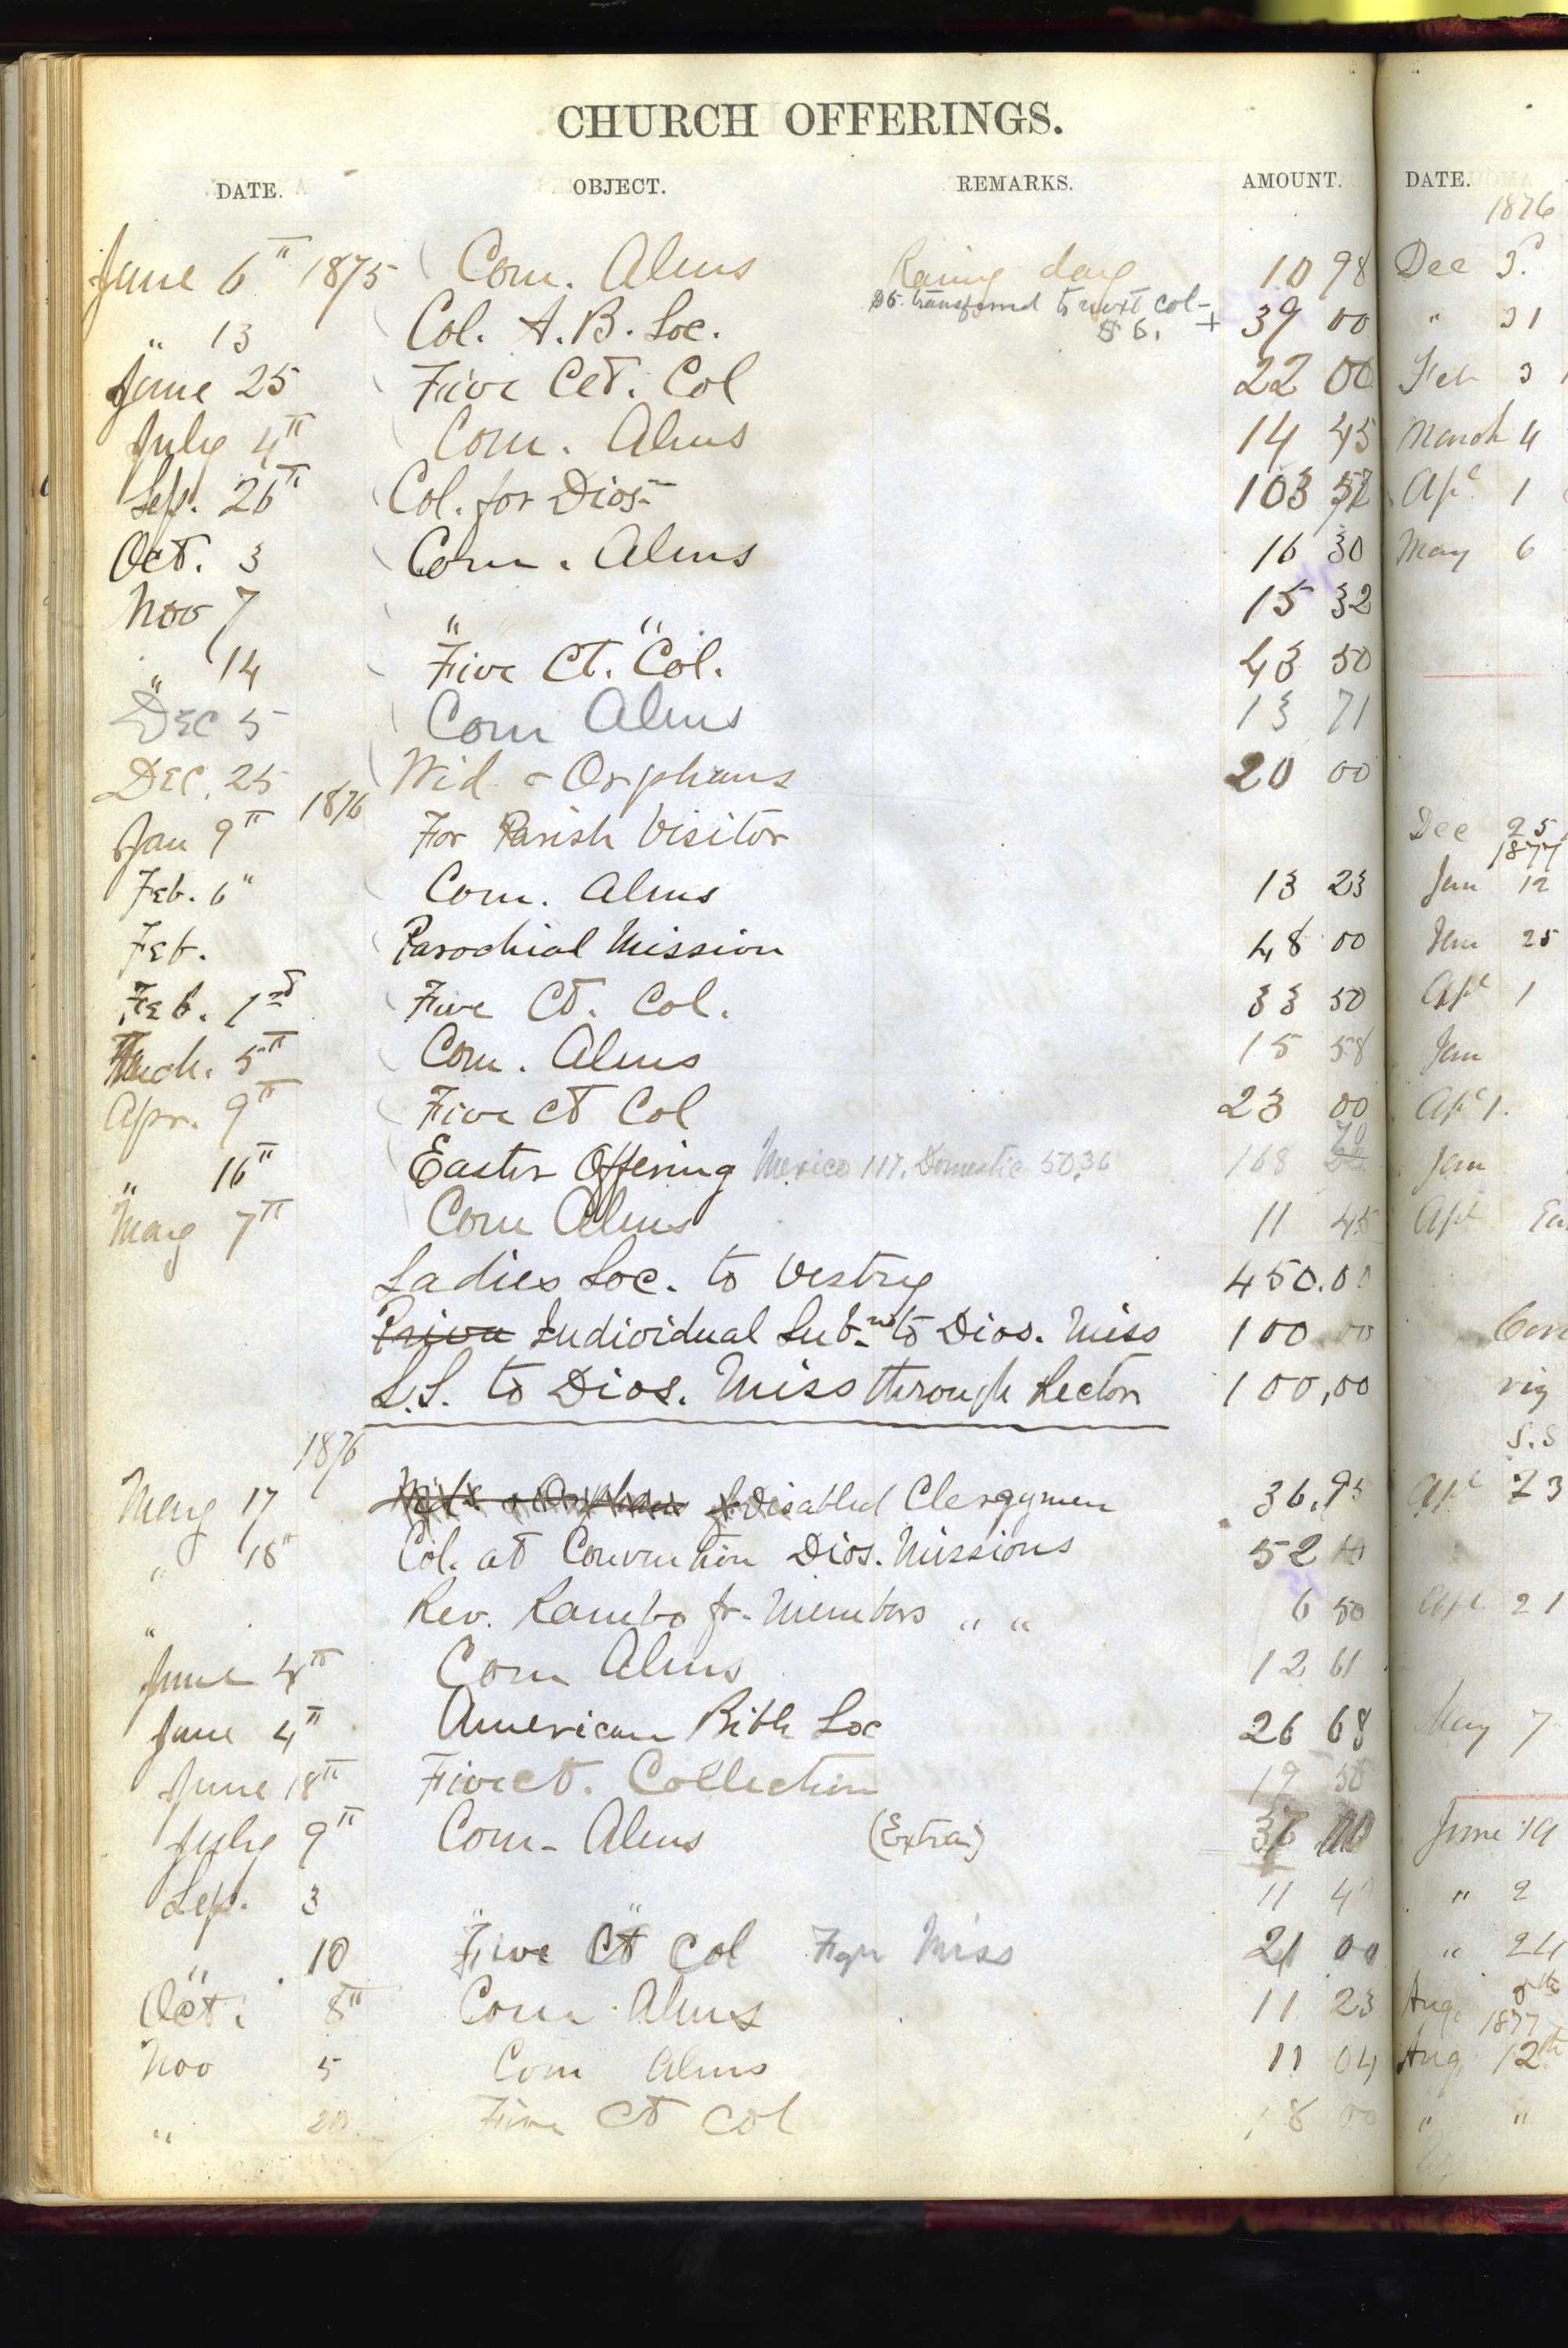 CHURCH OFFERINGS.
DATE. OBJECT. REMARKS. AMOUNT.
June 6" 1875 Com. Alms Rainy day 10 98
" 13 Col. A. B. Soc. $6. transferred to next col- $6. + 39 00
June 25 Five Cet. Col 22 00
July 4th Com. Alms 14 45
Sep. 26th Col. for Dios- 103 52
Oct. 3 Com. Alms 16 30
Nov 7 " " 15 32
" 14 Five Ct. Col. 43 50
Dec 5 Com Alms 13 71
Dec. 25 Wid & Orphans 20 00
1876
Jan 9th For Parish Visitor
Feb. 6" Com. Alms 13 23
Feb. Parochial Mission 48 00
Feb. Five Ct. Col. 33 50
Mch. 5th Com. Alms 15 58
Apr. 9th Five Ct Col 23 00
" 16" Easter Offering Mexico 117. Domestic 50.36 168 70
May 7th Com Alms 11 45
Ladies Soc. to Vestry 450.00
Priva Individual Sub-ns to Dios. Miss 100 00
S.S. to Dios. Miss through Rector 100,00
1876
May 17 Disabled Clergymen 36.95
" 18" Col. at Convention Dios. Missions 52
" Rev. Rambo fr. Members " " 6 50
June 4th Com Alms 12 61
June 4th American Bible Soc 26 68
June 18th Five Ct. Collection 19 50
July 9th Com- Alms (Extra)
Sep. 3 " " 11
" 10 Five Ct Col Fgn Miss 21 00
Oct. 8" Com. Alms 11 23
Nov 5 Com Alms 11 04
" 20 Five Ct Col 18 00
DATE.
1876
Dec 3d
" 31
Feb 3
March 4
Apl 1
May 6
Dec 25
1877
Jan 12
Jan 25
Apl 1
Jan
Apl 1.
Jan
Apl
S.S
Apl 23
Apl 21
May 7
June 19
" 2
" 24
Aug.
1877
Aug. 12th
" "